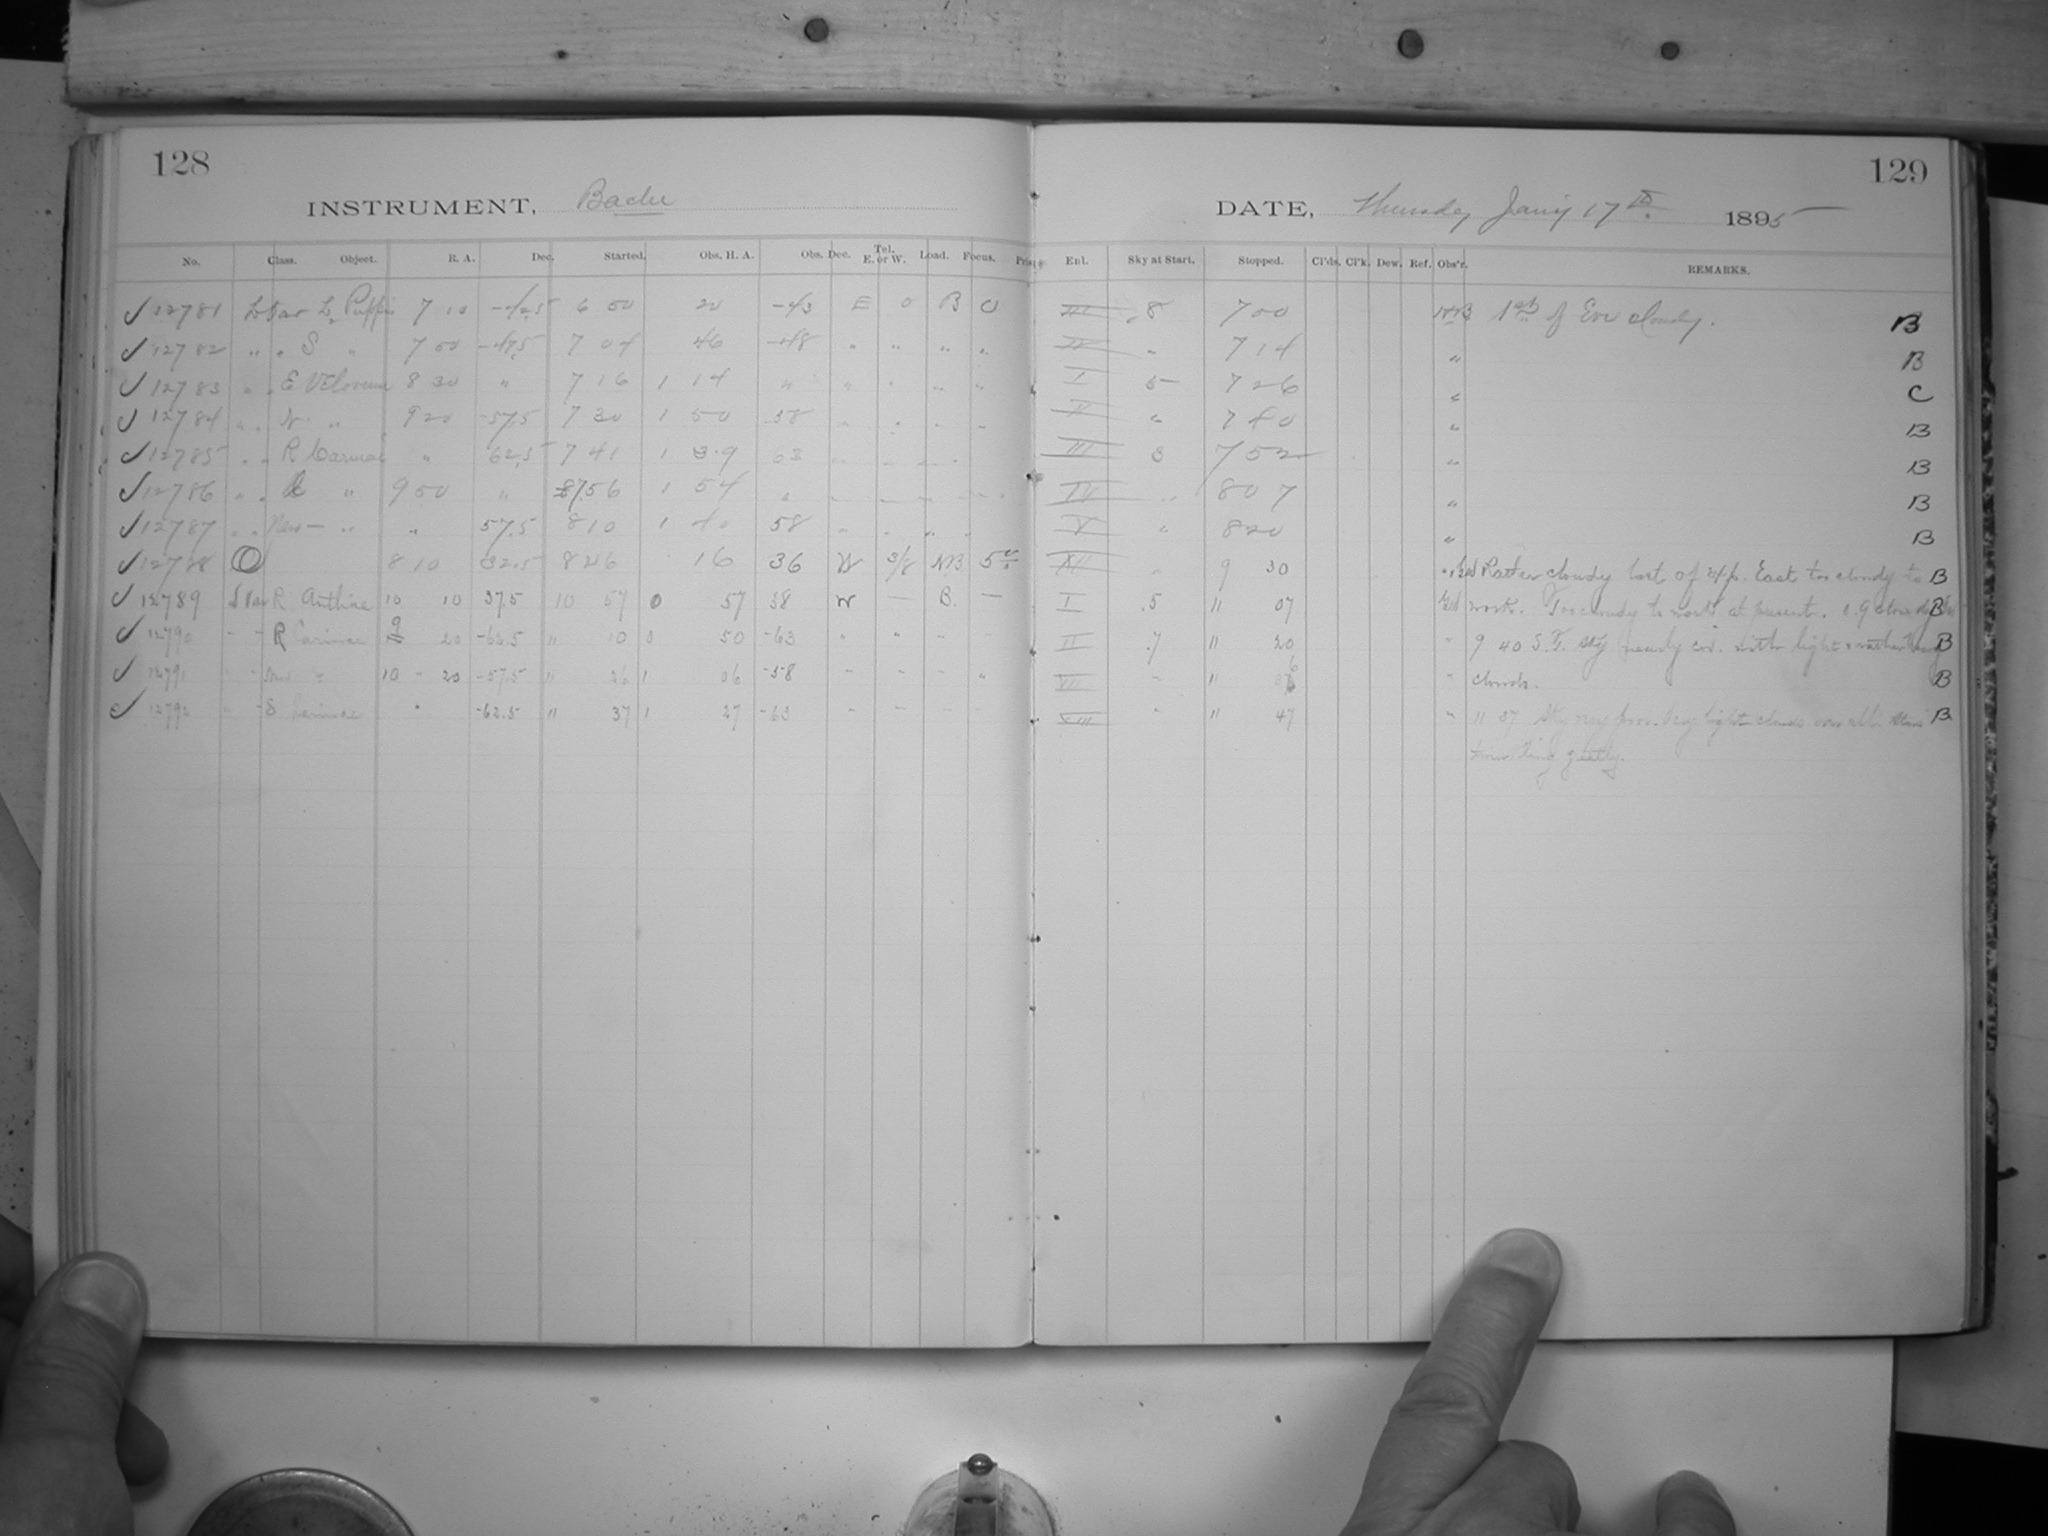 128
INSTRUMENT, Bache
No. Class. Object. R. A. Dec. Started. Obs. H. A. Obs. Dec. Tel. E. or W. Load. Focus.
✓ 12781 L2 Puppis 7 10 -42.5 6 50 20 -43 E 0 B 0
✓ 12782 " " S " 7 00 -47.5 7 04 46 -48 " " " "
✓ 12783 " " E Velorum 8 30 " 7 16 1 14 " " " " "
✓ 12784 " " N " 9 20 -57.5 7 30 1 50 58 " " " "
✓ 12785 " " R Carinae " 62.5 7 41 1 39 63
✓ 12786 " " " 9 50 " 7 56 1 54 "
✓ 12787 " " New — " " 57.5 8 10 1 40 58
✓ 12788 O 8 10 32.5 8 26 16 36 W 3/8 5
✓ 12789 R Antliae 10 10 37.5 10 57 0 57 38 W — B. —
✓ 12790 " " R Carinae 9 20 -62.5 " 10 0 50 -63 " " - -
✓ 12791 " " 10 - 20 -57.5 " 26 1 06 -58 " - - "
✓ 12792 " " S Carinae " -62.5 " 37 1 27 -63 " - -
129
DATE, Thursday Jan'y 17th. 1895
Enl. Sky at Start. Stopped. Cl'ds. Cl'k. Dew. Ref. Obs'r. REMARKS.
III .8 7 00 1st of Eve cloudy. B
IV " 7 14 " B
I 5 7 26 " C
II " 7 40 " B
III 3 7 52 " B
IV " 8 07 " B
V " 8 20 " B
XII " 9 30 Rather cloudy last of exp. East too cloudy to B
I .5 " 07 work. Too cloudy to work at present. B
II .7 " 20 " 9 40 S.T. sky nearly cov. with light & rather heavy B
VII " " 36 " clouds. B
XIII " " 47 " 11 37 Sky very poor. Very light clouds over all. Stars B
trembling greatly.